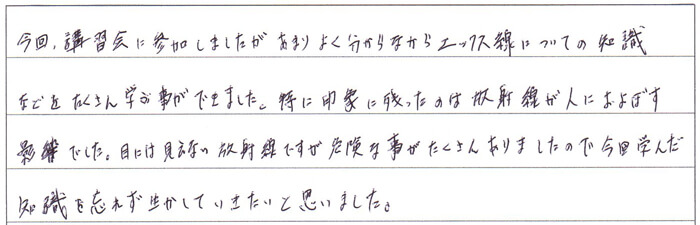 今回、講習会に参加しましたがあまりよく分からなからエックス線についての知識
などをたくさん学ぶ事ができました。特に印象に残ったのは放射線が人におよぼす
影響でした。目には見えない放射線ですが危険な事がたくさんありましたので今回学んだ
知識を忘れず生かしていきたいと思いました。